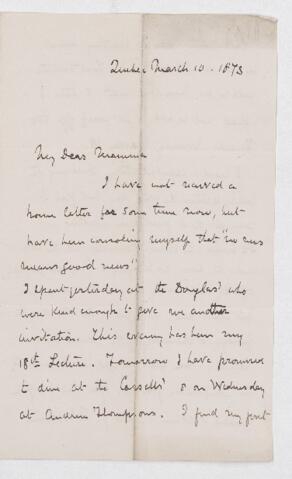 Quebec March 10. 1873
My Dear Mamma
I have not received a
home letter for some time now, but
have been consoling myself that "no news
means good news"
I spent yesterday at the Douglas' who
were kind enough to give me another
invitation. This evening has been my
18th Lecture. Tomorrow I have promised
to dine at the Cassells' & on Wednesday
at Andrew Thompsons. I find my first